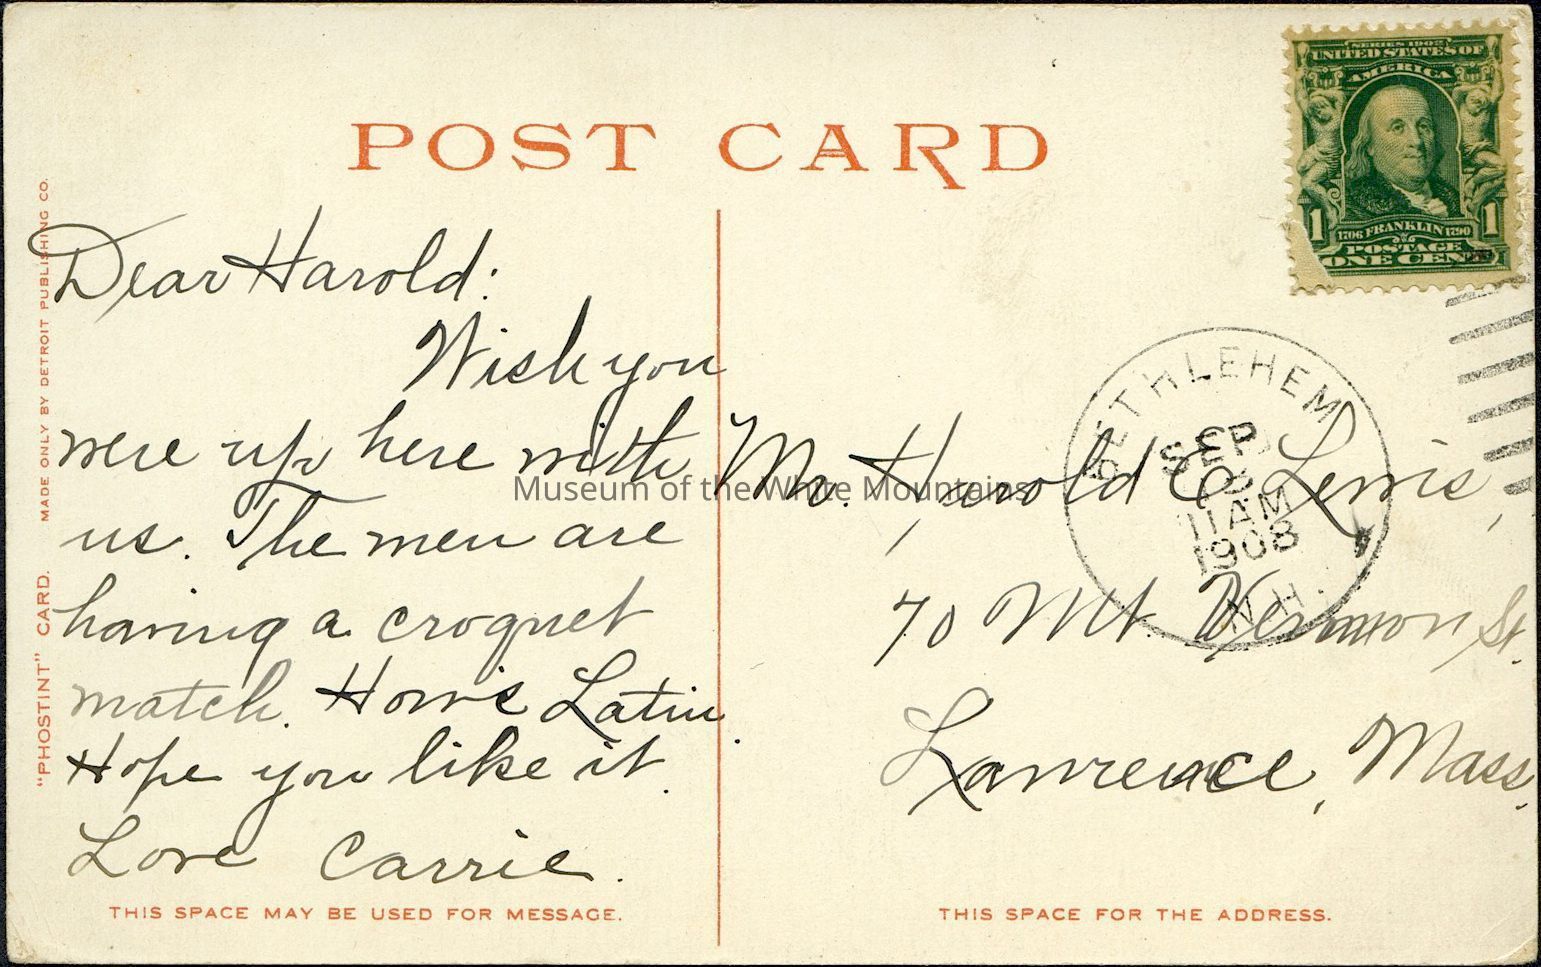 POST CARD
"PHOSTINT" CARD. MADE ONLY BY DETROIT PUBLISHING CO.
Dear Harold:
Wish you
were up here with
us. The men are
having a croquet
match. How's Latin.
Hope you like it.
Love Carrie.
THIS SPACE MAY BE USED FOR MESSAGE.
SERIES 1902
UNITED STATES OF
AMERICA
1 1
1706 FRANKLIN 1790
POSTAGE
ONE CENT
BETHLEHEM
SEP
11 AM
1908
N.H.
Mr. Harold C. Lewis,
70 Mt. Vernon St.
Lawrence, Mass.
THIS SPACE FOR THE ADDRESS.
Museum of the White Mountains